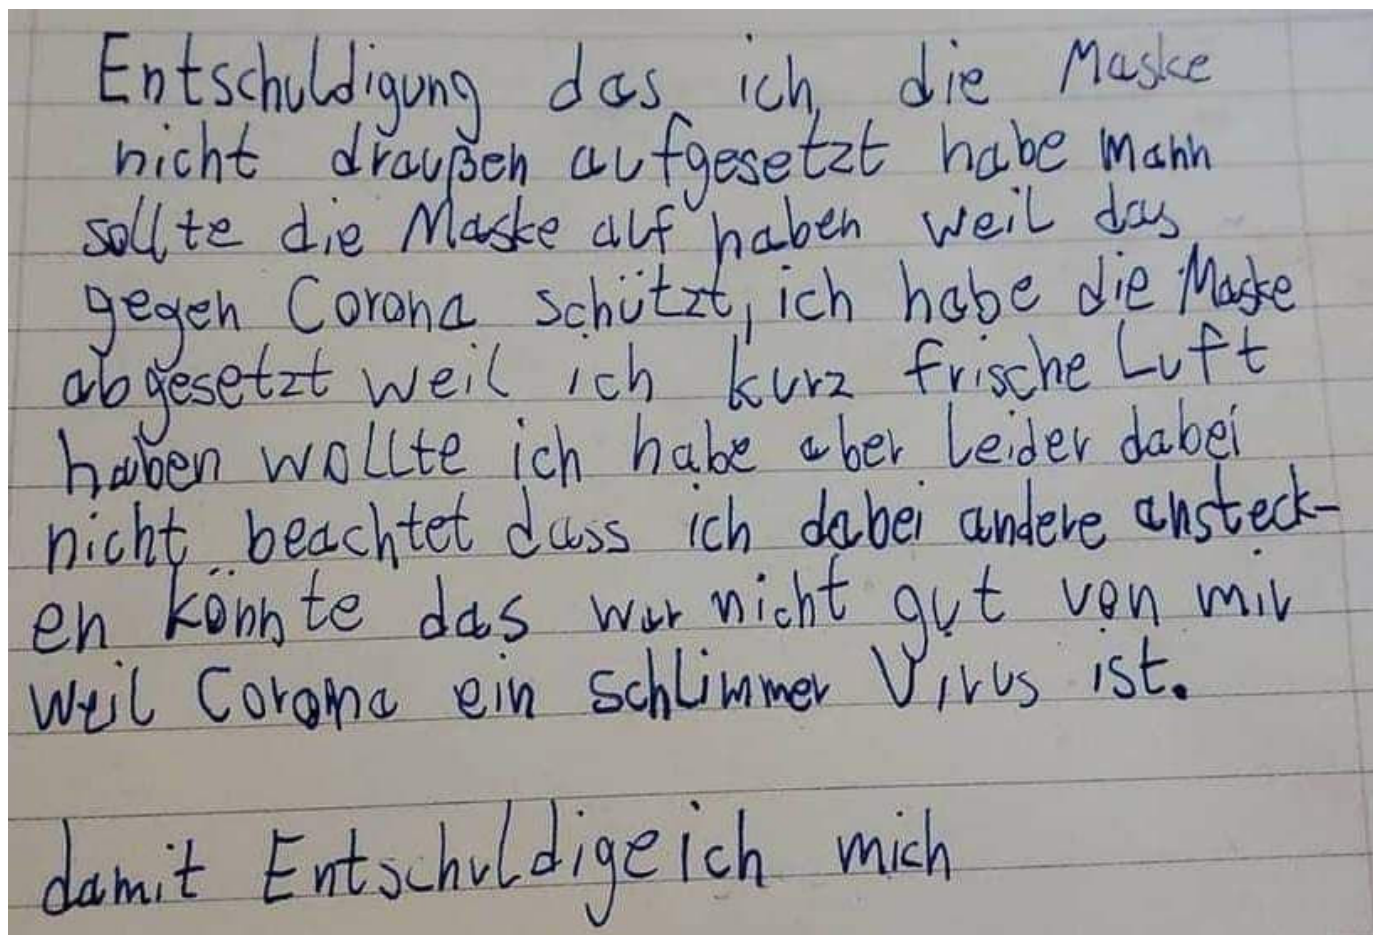 Entschuldigung das ich die Maske
nicht draußen aufgesetzt habe mann
sollte die Maske auf haben weil das
gegen Corona schützt, ich habe die Maske
abgesetzt weil ich kurz frische Luft
haben wollte ich habe aber leider dabei
nicht beachtet dass ich dabei andere ansteck-
en könnte das war nicht gut von mir
weil Corona ein schlimmer Virus ist.
damit Entschuldige ich mich